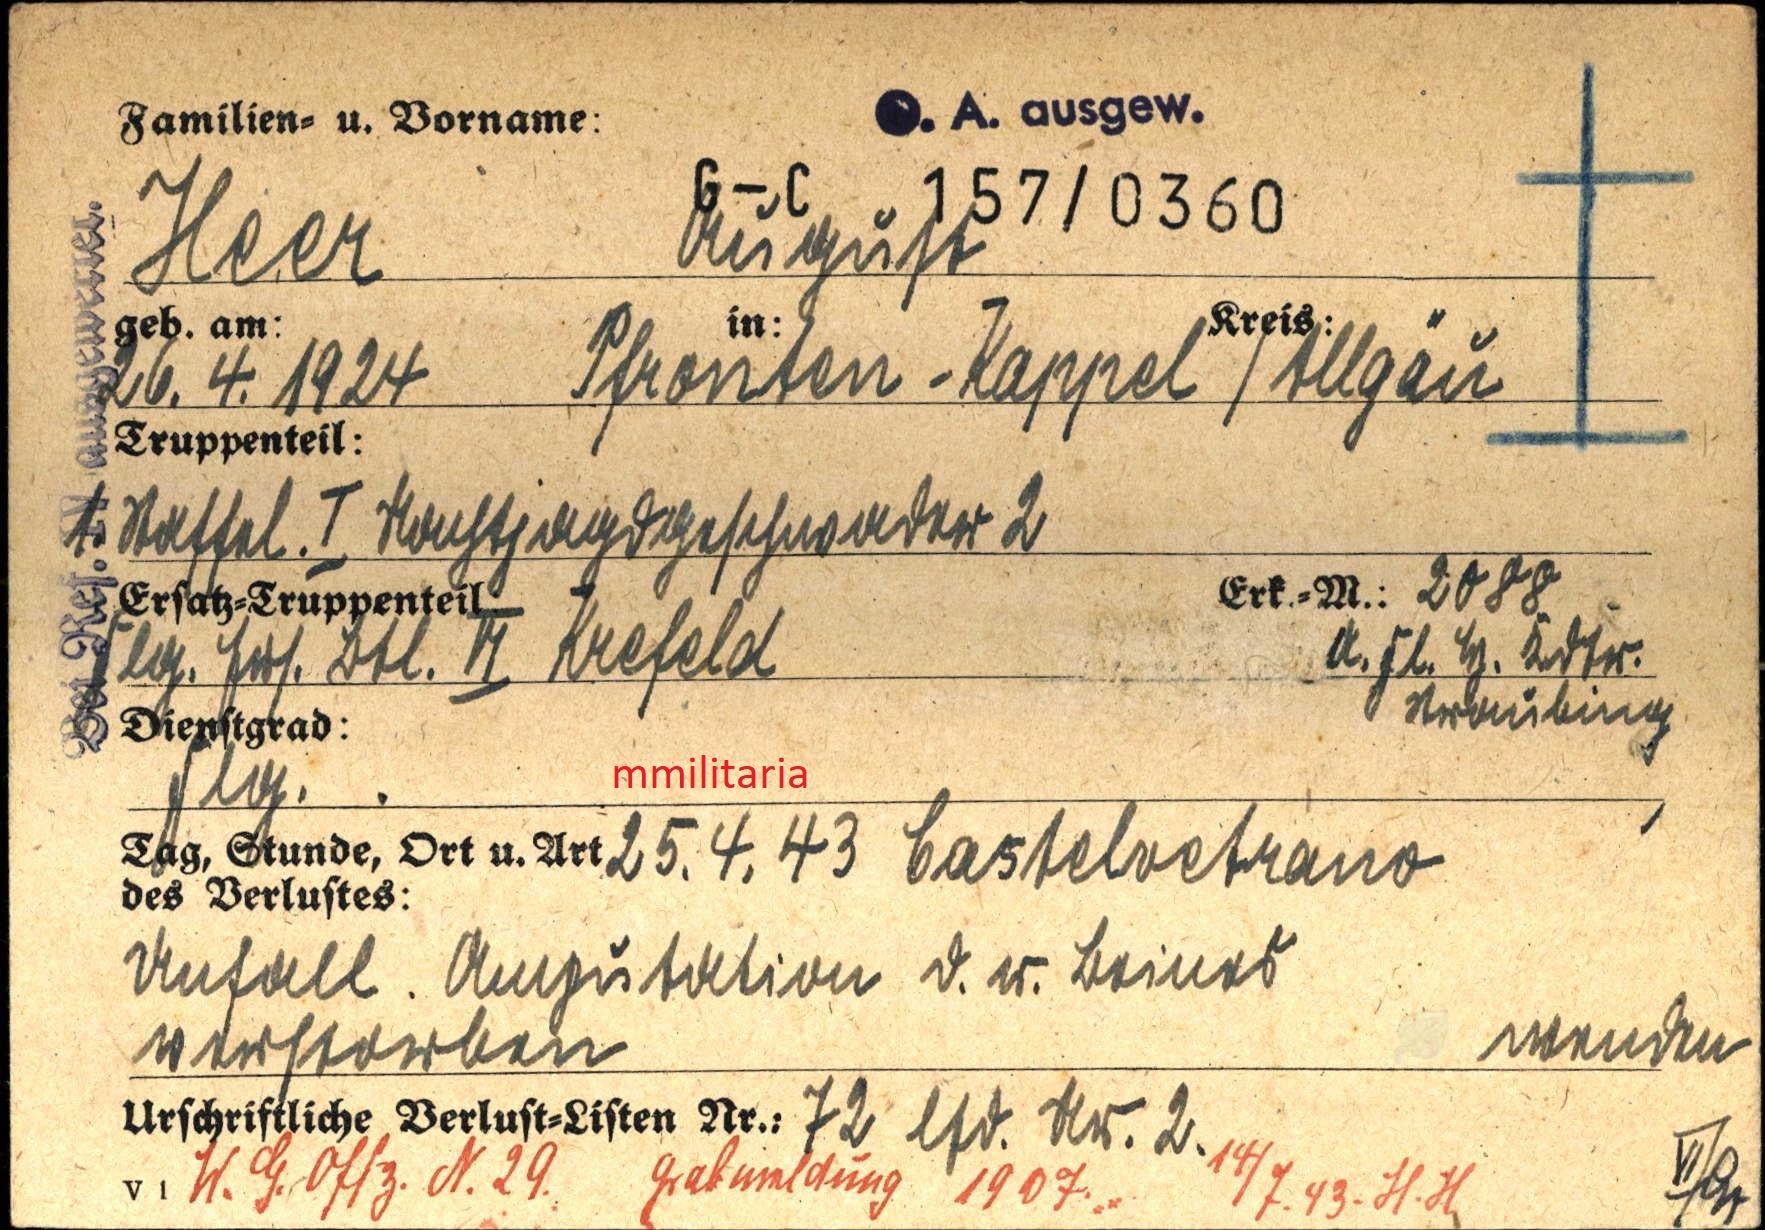 O. A. ausgew.
Familien- u. Vorname:
G-C 157/0360
Heer August
geb. am: in: Kreis:
26. 4. 1924 Pfronten-Kappel / Allgäu
Truppenteil:
1. Staffel. I Nachtjagdgeschwader 2
Ersatz-Truppenteil Erk.-M.: 2088
Flg. Ers. Btl. VI Krefeld A. Fl. H. Kdtr.
Straubing
Dienstgrad:
Flg.
mmilitaria
Tag, Stunde, Ort u. Art 25. 4. 43 Castelvetrano
des Verlustes:
Unfall. Amputation d. r. Beines
verstorben wenden
Urschriftliche Verlust-Listen Nr.: 72 lfd. Nr. 2.
V 1 W. G. Offz. N. 29. Grabmeldung 1907. 14/7. 43. H. H
Bei Ref. IV ausgewertet.